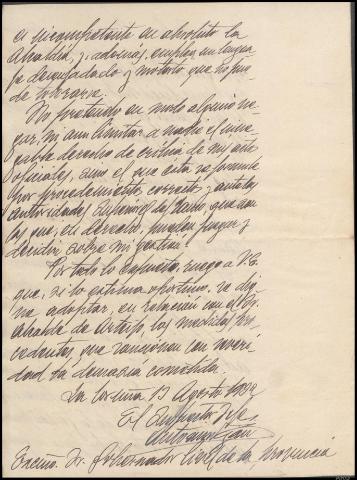 es incompetente en absoluto la
Alcaldía, y, además, emplea un lengua
je desenfadado y molesto, que no pue
de tolerarse.
No pretendo en modo alguno ne
gar, ni aun limitar a nadie el inne
gable derecho de crítica de mis actos
oficiales, sino el que ésta se formule
por procedimiento correcto y ante las
autoridades superiores del Ramo, que son
las que, en derecho, pueden juzgar y
decidir sobre mi gestión.
Por todo lo expuesto, ruego a V.E.
que, si lo estima oportuno, se dig
ne adoptar, en relación con el Sr.
Alcalde de Arteijo, las medidas pro
cedentes, que sancionen con severi
dad la demasía cometida.
La Coruña 13 Agosto
El Inspector Jefe,
Excmo. Sr. Gobernador Civil de la provincia